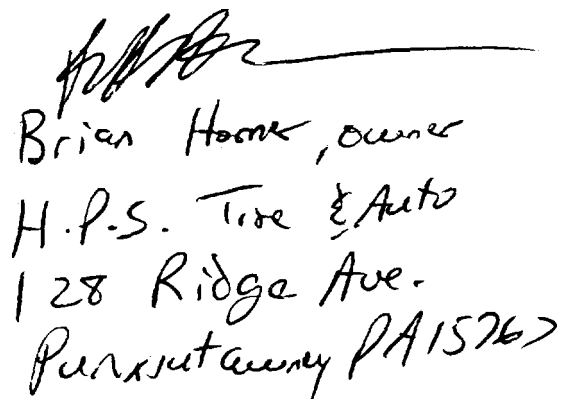 Brian Horner, owner
H.P.S. Tire & Auto
128 Ridge Ave.
Punxsutawney PA 15767